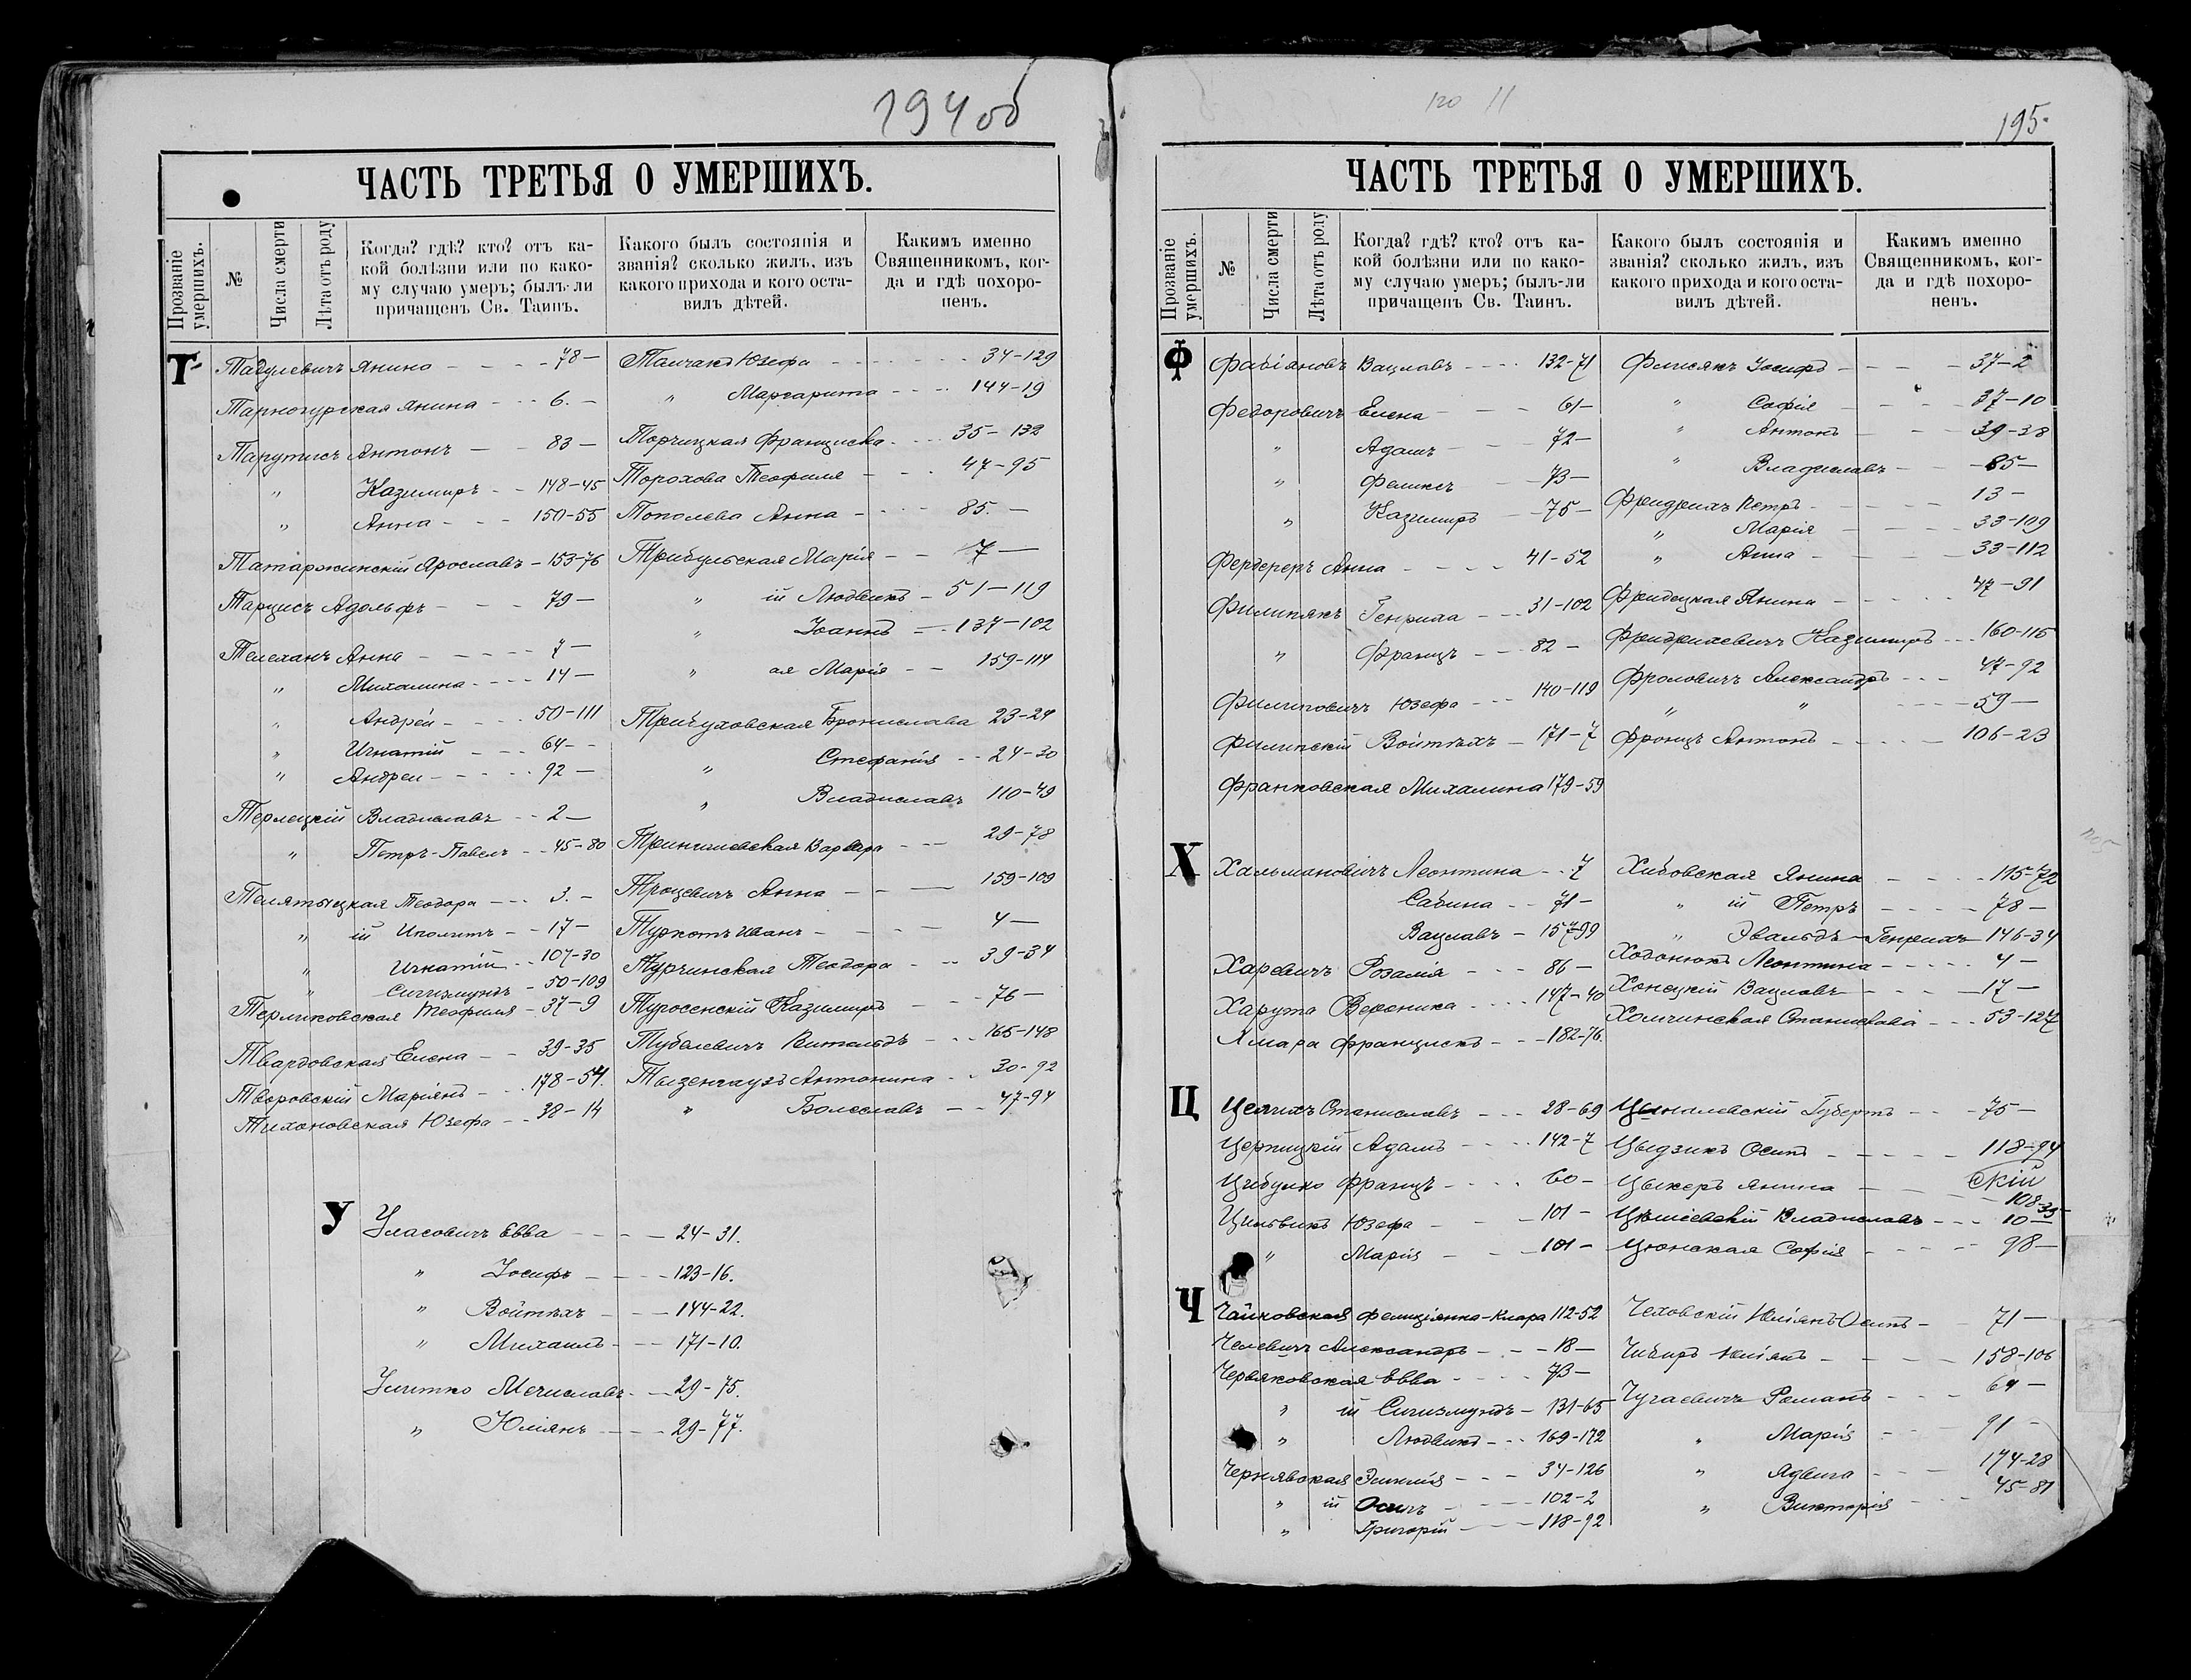 194 об
ЧАСТЬ ТРЕТЬЯ О УМЕРШИХЪ.
Прозваніе умершихъ.
№
Числа смерти
Лѣта отъ роду
Когда? гдѣ? кто? отъ ка-
кой болѣзни или по како-
му случаю умеръ; былъ-ли
причащенъ Св. Таинъ.
Какого былъ состоянія и
званія? сколько жилъ, изъ
какого прихода и кого оста-
вилъ дѣтей.
Какимъ именно
Священникомъ, ког-
да и гдѣ похоро-
ненъ.
Т
Тадулевичъ Янина - - - - 78 -
Тарногурская Янина - - - 6. -
Тарутисъ Антонъ - - 83 -
" Казимиръ - - 148-45
" Анна - - - 150-55
Татаржинскій Ярославъ - 153-76
Тарцисъ Адольфъ - - - 79 -
Телеханъ Анна - - - - - 7 -
" Михалина - - - - 14 -
" Андрей - - - - 50-111
" Игнатій - - - 64 - -
" Андрей - - - - - 92 -
Терлецкій Владиславъ - - 2 -
" Петръ-Павелъ - - 45-80
Телятыцкая Теодора - - - 3. -
" ій Иполитъ - - 17 -
" Игнатій - - 107-30
" Сигизмундъ - 50-109
Терликовская Теофиля - 37-9
Твардовская Елена - - 39-35
Творовскій Маріянъ - - - 178-54.
Тихоновская Юзефа - - 38-14
Юзефа - - - - - - - - 34-129
" Маргарита - - - - 144-19
Торчицкая Франциска - - - - 35-132
Торохова Теофиля - - - 47-95
Тополева Анна - - - - 85. -
Трибульская Марія - - 7 -
" ій Людвикъ - 51-119
" Іоаннъ - - 137-102
" ая Марія - - 159-114
Трибуховская Бронислава 23-24
" Стефанія - - 24-30
" Владиславъ 110-49
Варвара - - - 29-78
Троцевичъ Анна - - - 159-109
Туркотъ Иванъ - - - - 4 -
Турчинская Теодора - - - 39-34
Туросенскій Казимиръ - - - 76 -
Тубелевичъ Витольдъ - - - 165-148
Тызенгаузъ Антонина - - 30-92
" Болеславъ - - 47-94
У
Уласовичъ Евва - - - - 24-31.
" Іосифъ - - - - 123-16.
" Войтѣхъ - - - 144-22.
" Михаилъ - - - 171-10.
Улитко Мечиславъ - - 29-75.
" Юліянъ - - - - 29-77.
195.
ЧАСТЬ ТРЕТЬЯ О УМЕРШИХЪ.
Прозваніе умершихъ.
№
Числа смерти
Лѣта отъ роду
Когда? гдѣ? кто? отъ ка-
кой болѣзни или по како-
му случаю умеръ; былъ-ли
причащенъ Св. Таинъ.
Какого былъ состоянія и
званія? сколько жилъ, изъ
какого прихода и кого оста-
вилъ дѣтей.
Какимъ именно
Священникомъ, ког-
да и гдѣ похоро-
ненъ.
Ф
Фабіановъ Вацлавъ - - - - 132-71
Федоровичъ Елена - - - 61 -
" Адамъ - - 72 -
" Феликсъ - 73 -
" Казимиръ - 75 -
Фердереръ Анна - - - - 41-52
Филипякъ Генриха - - - 31-102
" Францъ - - - 82 -
Филиповичъ Юзефа - - - 140-119
Филипскій Войтѣхъ - 171-7
Франковская Михалина 179-59
Флисякъ Іосифъ - - - - 37-2
" Софія - - - - 37-10
" Антонъ - - - 39-38
" Владиславъ - - - 85 -
Фридрихъ Петръ - - - - - 13 -
" Марія - - - - 33-109
" Анна - - - - 33-112
Фридецкая Янина - - - - 47-91
Фридрихевичъ Казимиръ - - - 160-115
Фроловичъ Александръ - - - 47-92
" " - - - - 59 -
Фронцъ Антонъ - - - - 106-23
Х
Хальмановичъ Леонтина - - 7
Сабина - - 71 -
Вацлавъ - 157-99
Харевичъ Розалія - - - 86 -
Харута Вероника - - - - 147-40
Хмара Францискъ - - - 182-76.
Хибовская Янина - - - - 115-72
" ій Петръ - - - - 78 -
" Эвальдъ-Генрихъ 146-34
Ходонюкъ Леонтина - - - - - 4 -
Хонецкій Вацлавъ - - - - 17 -
Холчинская Станислава - - - 53-127
Ц
Станиславъ - - - 28-69
Церпицкій Адамъ - - - - 142-7
Цибулко Францъ - - - - 60 -
Цильвикъ Юзефа - - - 101 -
" Марія - - - 101 -
Губертъ - - - 75 -
Цыдзикъ Осипъ - - - - - 118-94
Цыкеръ Янина - - скій
108-35
Владиславъ - - - 10 -
Цюнская Софія - - - - - 98 -
Ч
Чайковская Фелиціянна-Клара 112-52
Челевичъ Александръ - - - 18 -
Червяковская Евва - - - - 73 -
" ій Сигизмундъ - 131-65
" Людвикъ - - - 169-172
Чернявская Эмилія - - - 34-126
" ій Осипъ - - - - 102-2
" Григорій - - - - 118-92
Чеховскій Юліянъ Осипъ - - 71 -
Чибиръ Юліянъ - - - - 158-106
Чугаевичъ Романъ - - - 64 -
" Марія - - - 91 -
" Ядвига - - - 174-28
" Викторія - - - 45-81